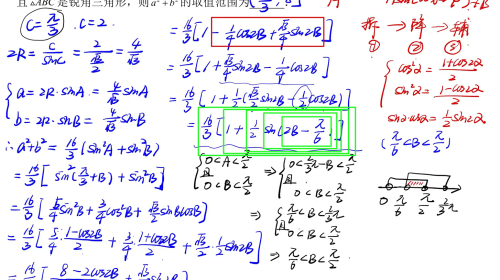 且△ABC 是锐角三角形，则a²+b²的取值范围为
C=π/3 . C=2.
2R=C/sinC=2/(√3/2)=4/√3
{a=2R·sinA=4/√3 sinA
b=2R·sinB=4/√3 sinB
∴a²+b²=16/3(sin²A+sin²B)
=16/3[sin²(π/3+B)+sin²B]
=16/3[5/4sin²B+3/4cos²B+√3/2sinBcosB]
=16/3[5/4·(1-cos2B)/2+3/4·(1+cos2B)/2+√3/2·1/2sin2B]
=16/3[1-1/4cos2B+√3/4sin2B]
=16/3[1+√3/4sin2B-1/4cos2B]
=16/3[1+1/2(√3/2sin2B-1/2cos2B)]
=16/3[1+1/2sin(2B-π/6)]
{0<A<π/2
且
0<B<π/2
⇒{0<2/3π-B<π/2
且
0<B<π/2
⇒{π/6<B<2/3π
且
0<B<π/2
⇒π/6<B<π/2
拆→降→辅
① ② ③
{cos²α=(1+cos2α)/2
sin²α=(1-cos2α)/2
sinα·cosα=1/2sin2α
(π/6<B<π/2)
0 π/6 π/2 2/3π